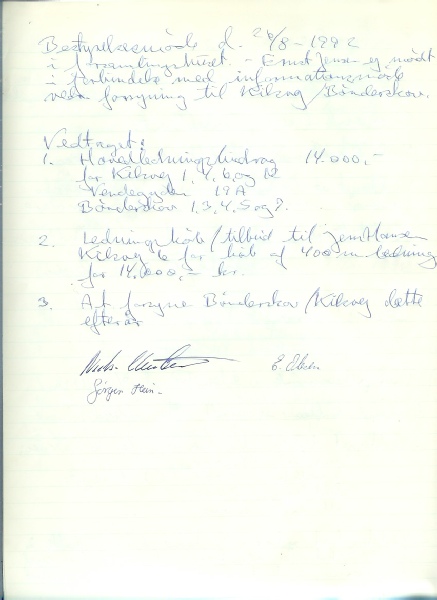 Bestyrelsesmøde d. 26/8-1992
i forsamlingshuset. - Ernst Jensen ej mødt
i forbindelse med informationsmøde
vedr. forsyning til Kilsvej/Bønderskov.
Vedtaget:
1. Hovedledningsbidrag 14.000,-
for Kilsvej 1, 4, 6, og 12
Vendegyden 19A
Bønderskov 1, 3, 4, 5 og 7.
2. Ledningskøb/tilbud til Jens Hansen
Kilsvej 6 for køb af 400 m ledning
for 14.000,- kr.
3. At forsyne Bønderskov/Kilsvej dette
efterår
E. Ebsen
Jørgen Hein.